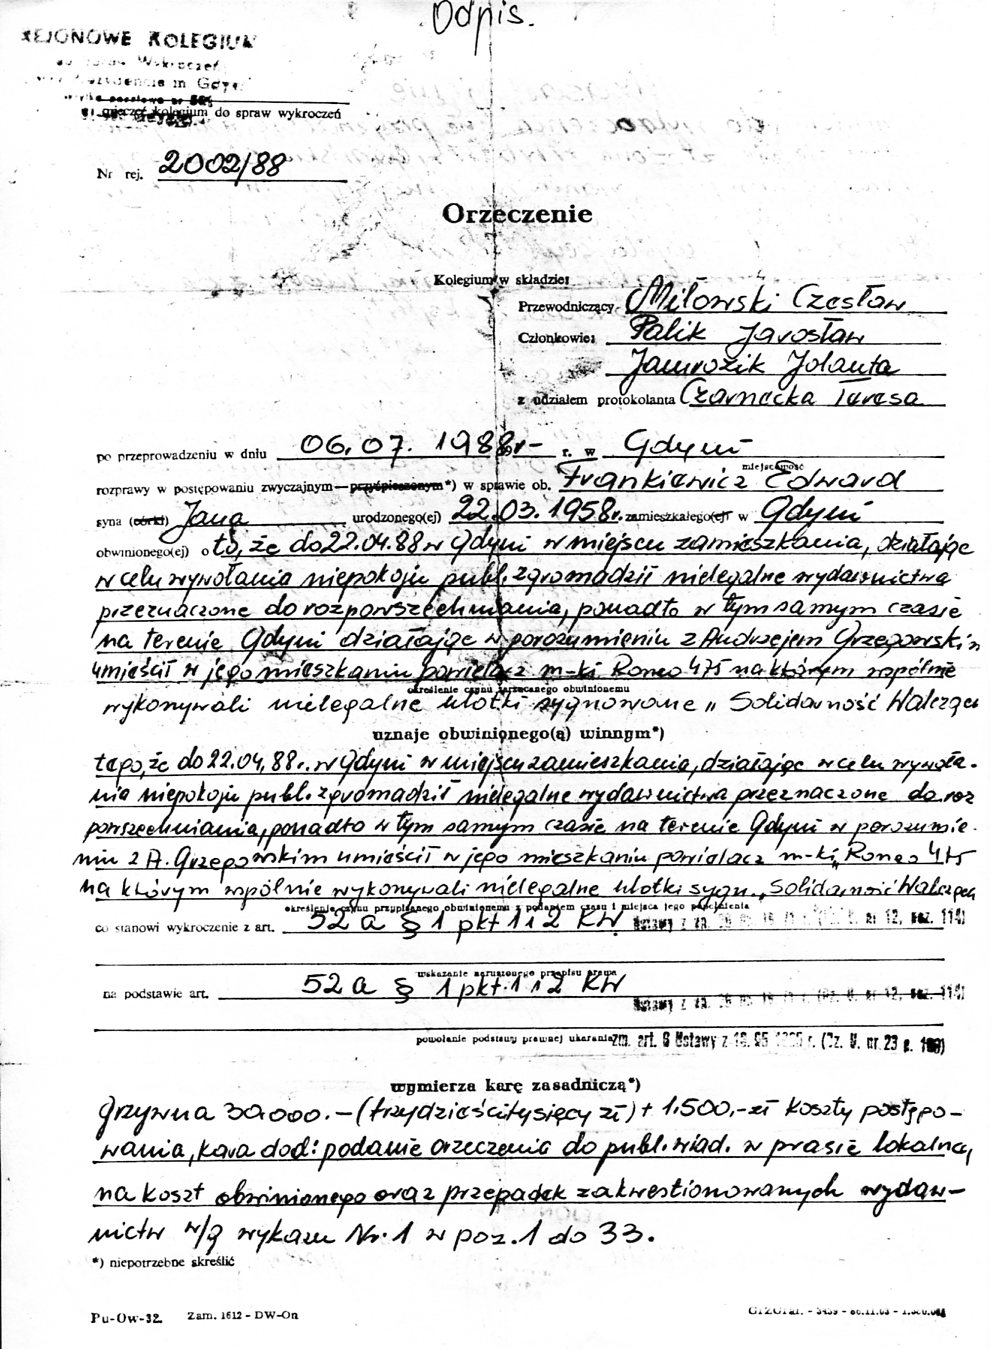 Odpis.
REJONOWE KOLEGIUM
do spraw Wykroczeń
pieczęć kolegium do spraw wykroczeń
Nr rej. 2002/88
Orzeczenie
Kolegium w składzie:
Przewodniczący Miłowski Czesław
Członkowie: Palik Jarosław
Jamrożik Jolanta
z udziałem protokolanta Czarnecka Teresa
po przeprowadzeniu w dniu 06.07.1988r- r. w Gdyni
miejscowość
rozprawy w postępowaniu zwyczajnym—przyśpieszonym*) w sprawie ob. Frankiewicz Edward
syna (córki) Jana urodzonego(ej) 22.03.1958r. zamieszkałego(ej) w Gdyni
obwinionego(ej) o to, że do 22.04.88 w Gdyni w miejscu zamieszkania, działając
w celu wywołania niepokoju publ. zgromadził nielegalne wydawnictwa
przeznaczone do rozpowszechniania, ponadto w tym samym czasie
na terenie Gdyni działając w porozumieniu z Andrzejem Grzegorskim
umieścił w jego mieszkaniu powielacz m-ki Roneo 475 na którym wspólnie
określenie czynu zarzucanego obwinionemu
wykonywali nielegalne ulotki sygnowane „Solidarność Walcząca
uznaje obwinionego(ą) winnym*)
tego, że do 22.04.88r. w Gdyni w miejscu zamieszkania, działając w celu wywoła-
nia niepokoju publ. zgromadził nielegalne wydawnictwa przeznaczone do roz
powszechniania, ponadto w tym samym czasie na terenie Gdyni w porozumie-
niu z A. Grzegorskim umieścił w jego mieszkaniu powielacz m-ki „Roneo 475
na którym wspólnie wykonywali nielegalne ulotki sygn. „Solidarność Walcząca
określenie czynu przypisanego obwinionemu z podaniem czasu i miejsca jego popełnienia
co stanowi wykroczenie z art. 52 a § 1 pkt 1 i 2 KW Ustawy z nr 12, poz. 114)
wskazanie naruszonego przepisu prawa
na podstawie art. 52 a § 1 pkt. 1 i 2 KW Ustawy z nr 12, poz. 114)
powołanie podstawy prawnej ukarania zm. art. 6 Ustawy z 10.05 1985 r. (Dz. U. nr. 23 p. 100)
wymierza karę zasadniczą*)
grzywna 30.000.— (trzydzieścitysięcy zł) + 1.500,-zł koszty postępo-
wania, kara dod: podanie orzeczenia do publ. wiad. w prasie lokalnej
na koszt obwinionego oraz przepadek zakwestionowanych wydaw-
nictw w/g wykazu Nr. 1 w poz. 1 do 33.
*) niepotrzebne skreślić
Pu-Ow-32. Zam. 1612 - DW-On